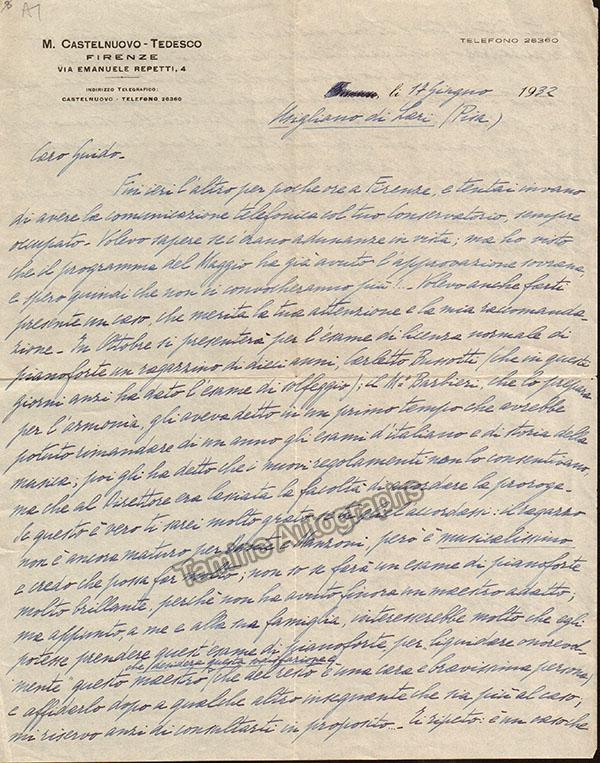 M. CASTELNUOVO - TEDESCO
FIRENZE
VIA EMANUELE REPETTI, 4
INDIRIZZO TELEGRAFICO:
CASTELNUOVO - TELEFONO 26360
TELEFONO 26360
li 17 Giugno 1932
Usigliano di Lari (Pisa)
Caro Guido -
Fui ieri l'altro per poche ore a Firenze, e tentai invano
di avere la comunicazione telefonica col tuo Conservatorio, sempre
occupato - Volevo sapere se c'erano adunanze in vista; ma ho visto
che il programma del Maggio ha già avuto l'approvazione sovrana,
e spero quindi che non ci convocheranno più!.. Volevo anche farti
presente un caso, che merita la tua attenzione e la mia raccomanda-
zione - In Ottobre si presenterà per l'esame di licenza normale di
pianoforte un ragazzino di dieci anni, Carletto Bussotti (che in questi
giorni anzi ha dato l'esame di solfeggio); il Mo Barbieri, che lo prepara
per l'armonia, gli aveva detto in un primo tempo che avrebbe
potuto rimandare di un anno gli esami d'italiano e di storia della
musica; poi gli ha detto che i nuovi regolamenti non lo consentivano,
ma che al Direttore era lasciata la facoltà di accordare la proroga -
Se questo è vero ti sarei molto grato se tu accordassi: il ragazzo
non è ancora maturo per Manzoni, però è musicalissimo
e credo che possa far molto; non so se farà un esame di pianoforte
molto brillante, perchè non ha avuto finora un maestro adatto;
ma appunto, a me e alla sua famiglia, interesserebbe molto che egli
potesse prendere quest'esame di pianoforte, per liquidare onorevol-
mente questo maestro (che del resto è una cara e bravissima persona)
e affidarlo dopo a qualche altro insegnante che sia più al caso;
mi riservo anzi di consultarti in proposito - Ti ripeto: è un caso che
Tamino Autographs